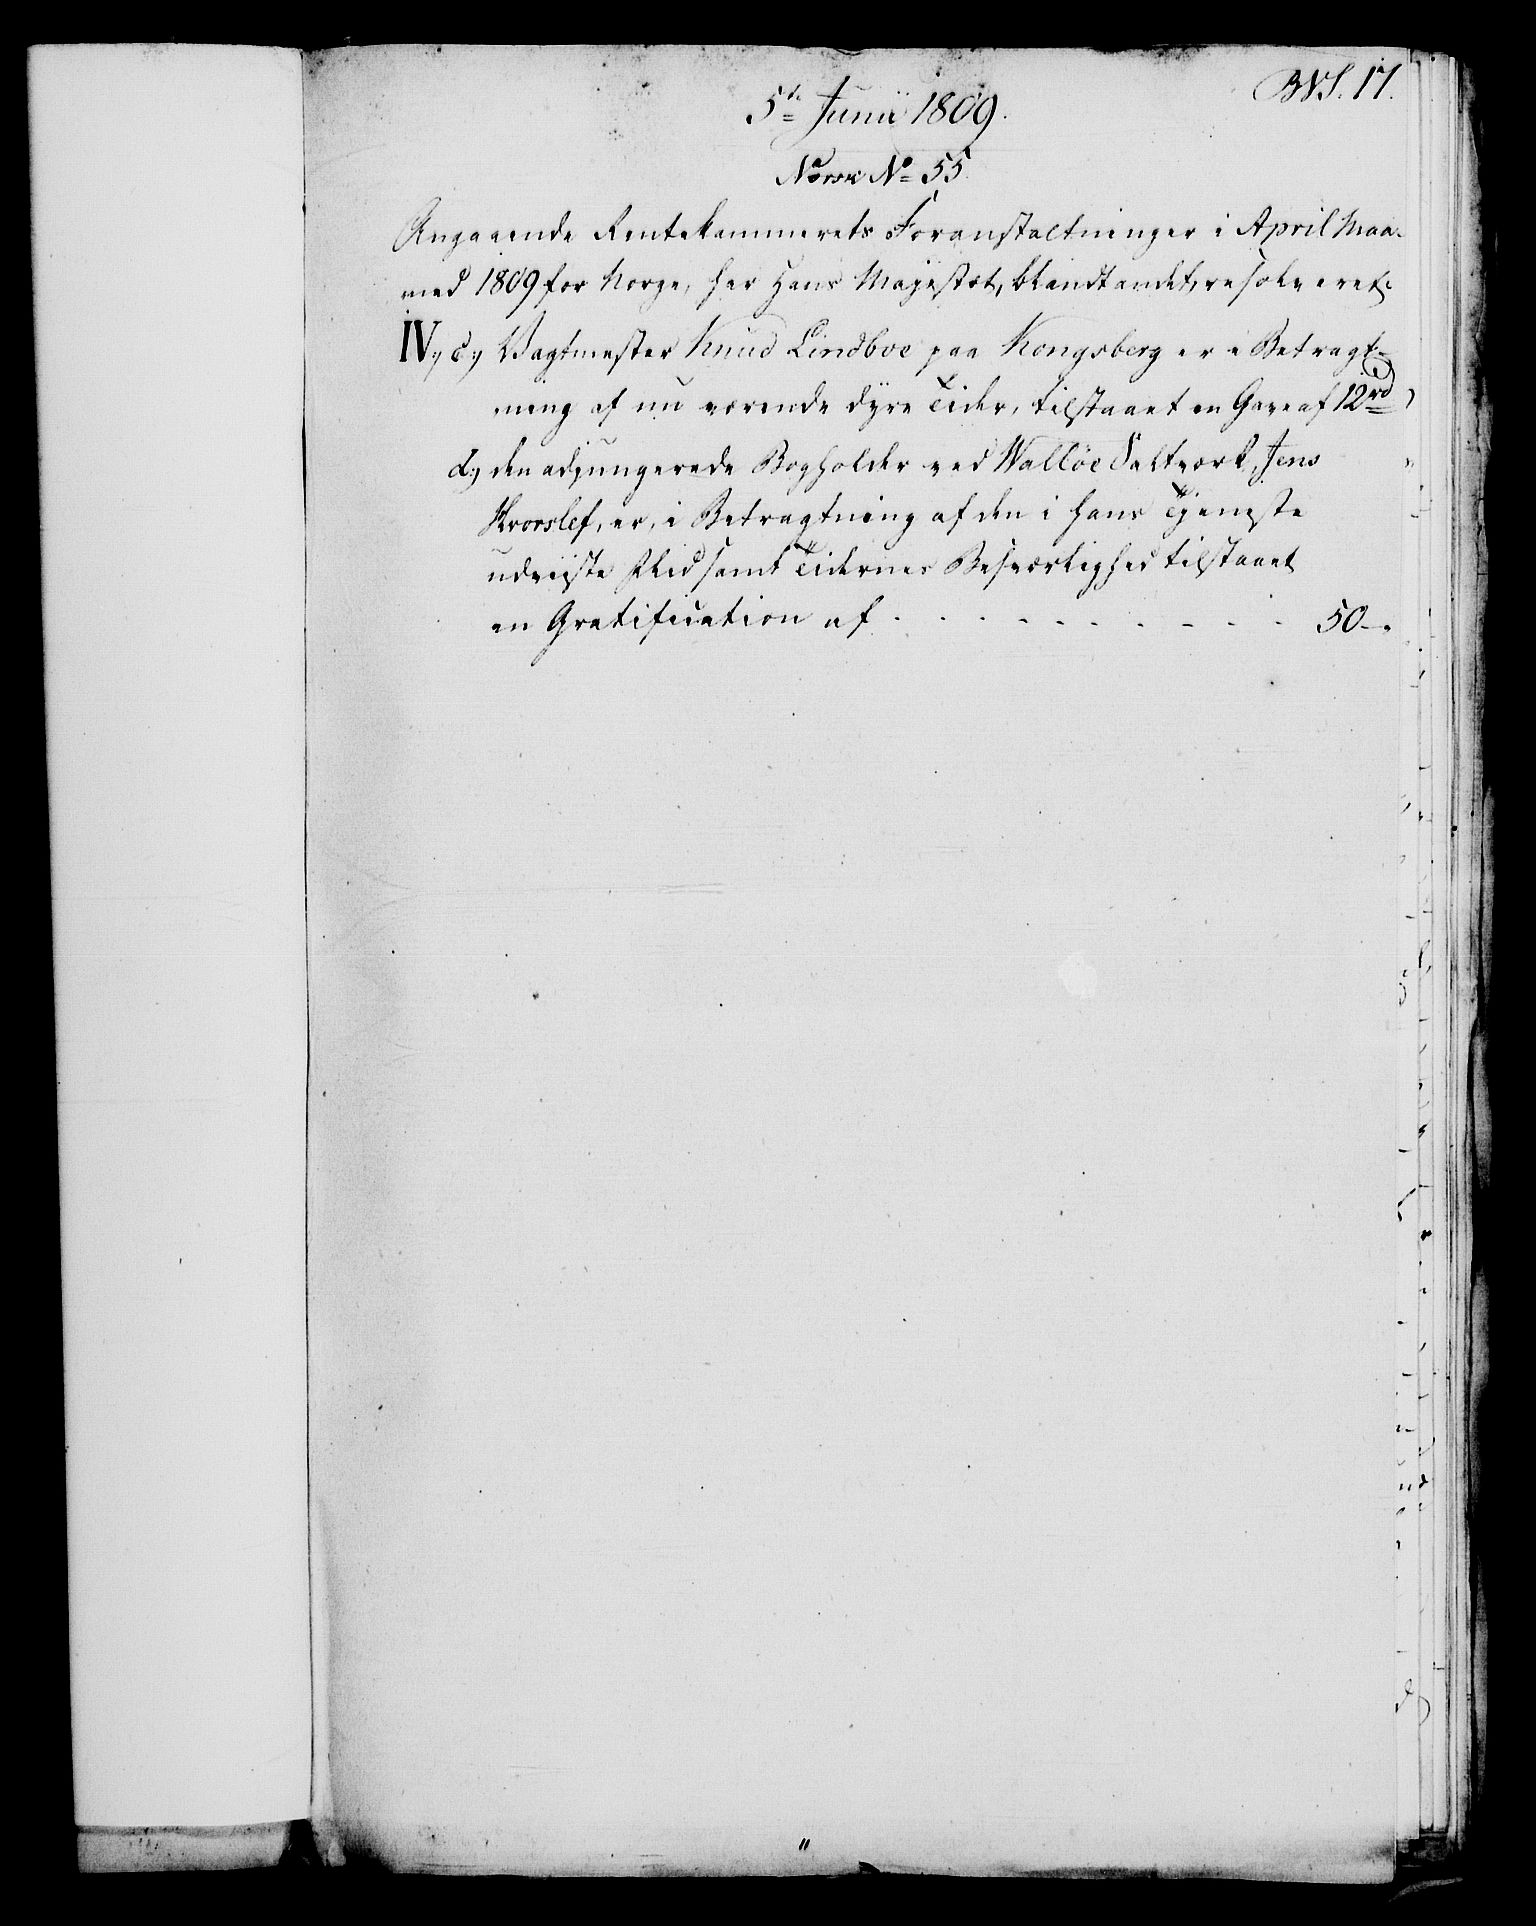 BVS. 17.
5te Junii 1809.
Norsk No 55.
Angaaende Rentekammerets Foranstaltninger i April Maa-
ned 1809 for Norge, har Hans Majestæt, blandt andet, resolveret:
IV., c.) Vagtmester Knud Lindboe paa Kongsberg er i Betragt-
ning af nu værende dyre Tider, tilstaaet en Gave af 12 rd
d.) den adjungerede Bogholder ved Walløe Saltværk, Jens
er, i Betragtning af den i hans Tjeneste
udviiste Flid samt Tidernes Besværlighed tilstaaet
en Gratification af . . . . . . . . . . 50 —